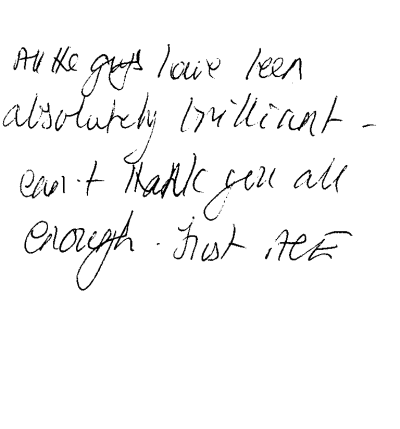 All the guys have been
absolutely brilliant -
can't thank you all
enough. Just ACE